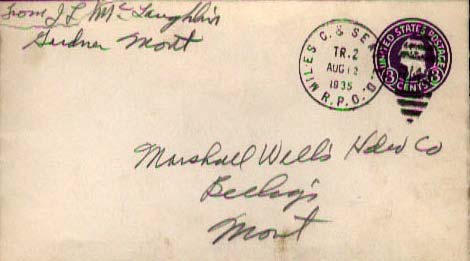 From J L McLaughlin
Gardner Mont
MILES C. & SEA
TR. 2
AUG 12
1935
R.P.O.
UNITED STATES POSTAGE
3 CENTS 3
Marshall Wells Hdw Co
Billings
Mont